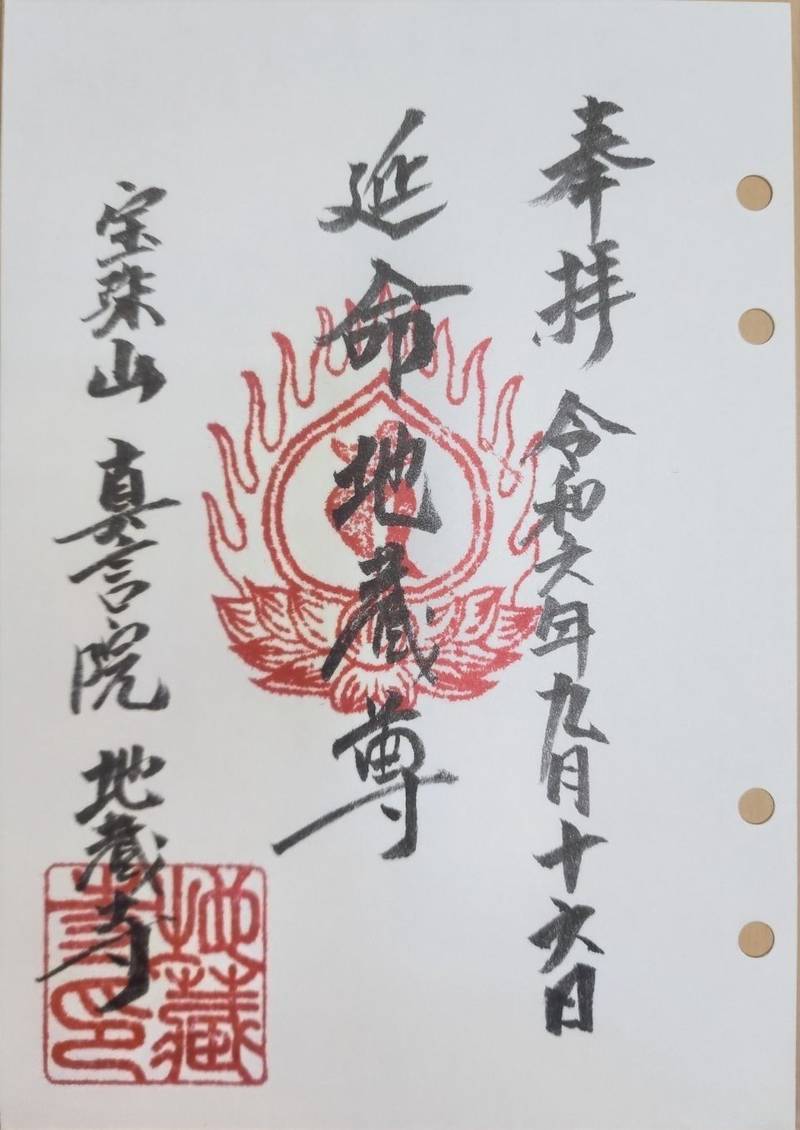 奉拝 令和六年九月十六日
延命地蔵尊
宝珠山 真言院 地蔵寺
地藏
寺印